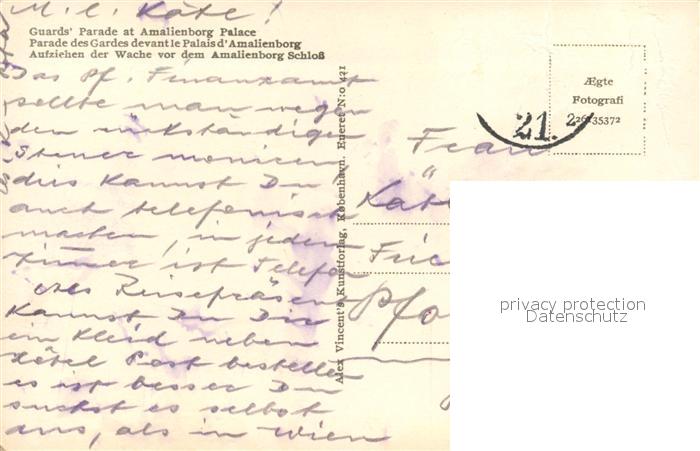 M. l. Käte!
Guards' Parade at Amalienborg Palace
Parade des Gardes devant le Palais d'Amalienborg
Aufziehen der Wache vor dem Amalienborg Schloß
Das Pf. Finanzamt
sollte man wegen
den rückständigen
Steuer monieren
dies kannst Du
auch telefonisch
machen, in jedem
Zimmer ist Telefon
Als Reisepräsent
kannst Du Dir
ein Kleid neben
Hotel Post bestellen
es ist besser Du
suchst es selbst
aus, als in Wien
Alex Vincent's Kunstforlag, København. Eneret N:o 421
Ægte
Fotografi
226/35372
21. 2
Frau
Käte
Pfo
privacy protection
Datenschutz